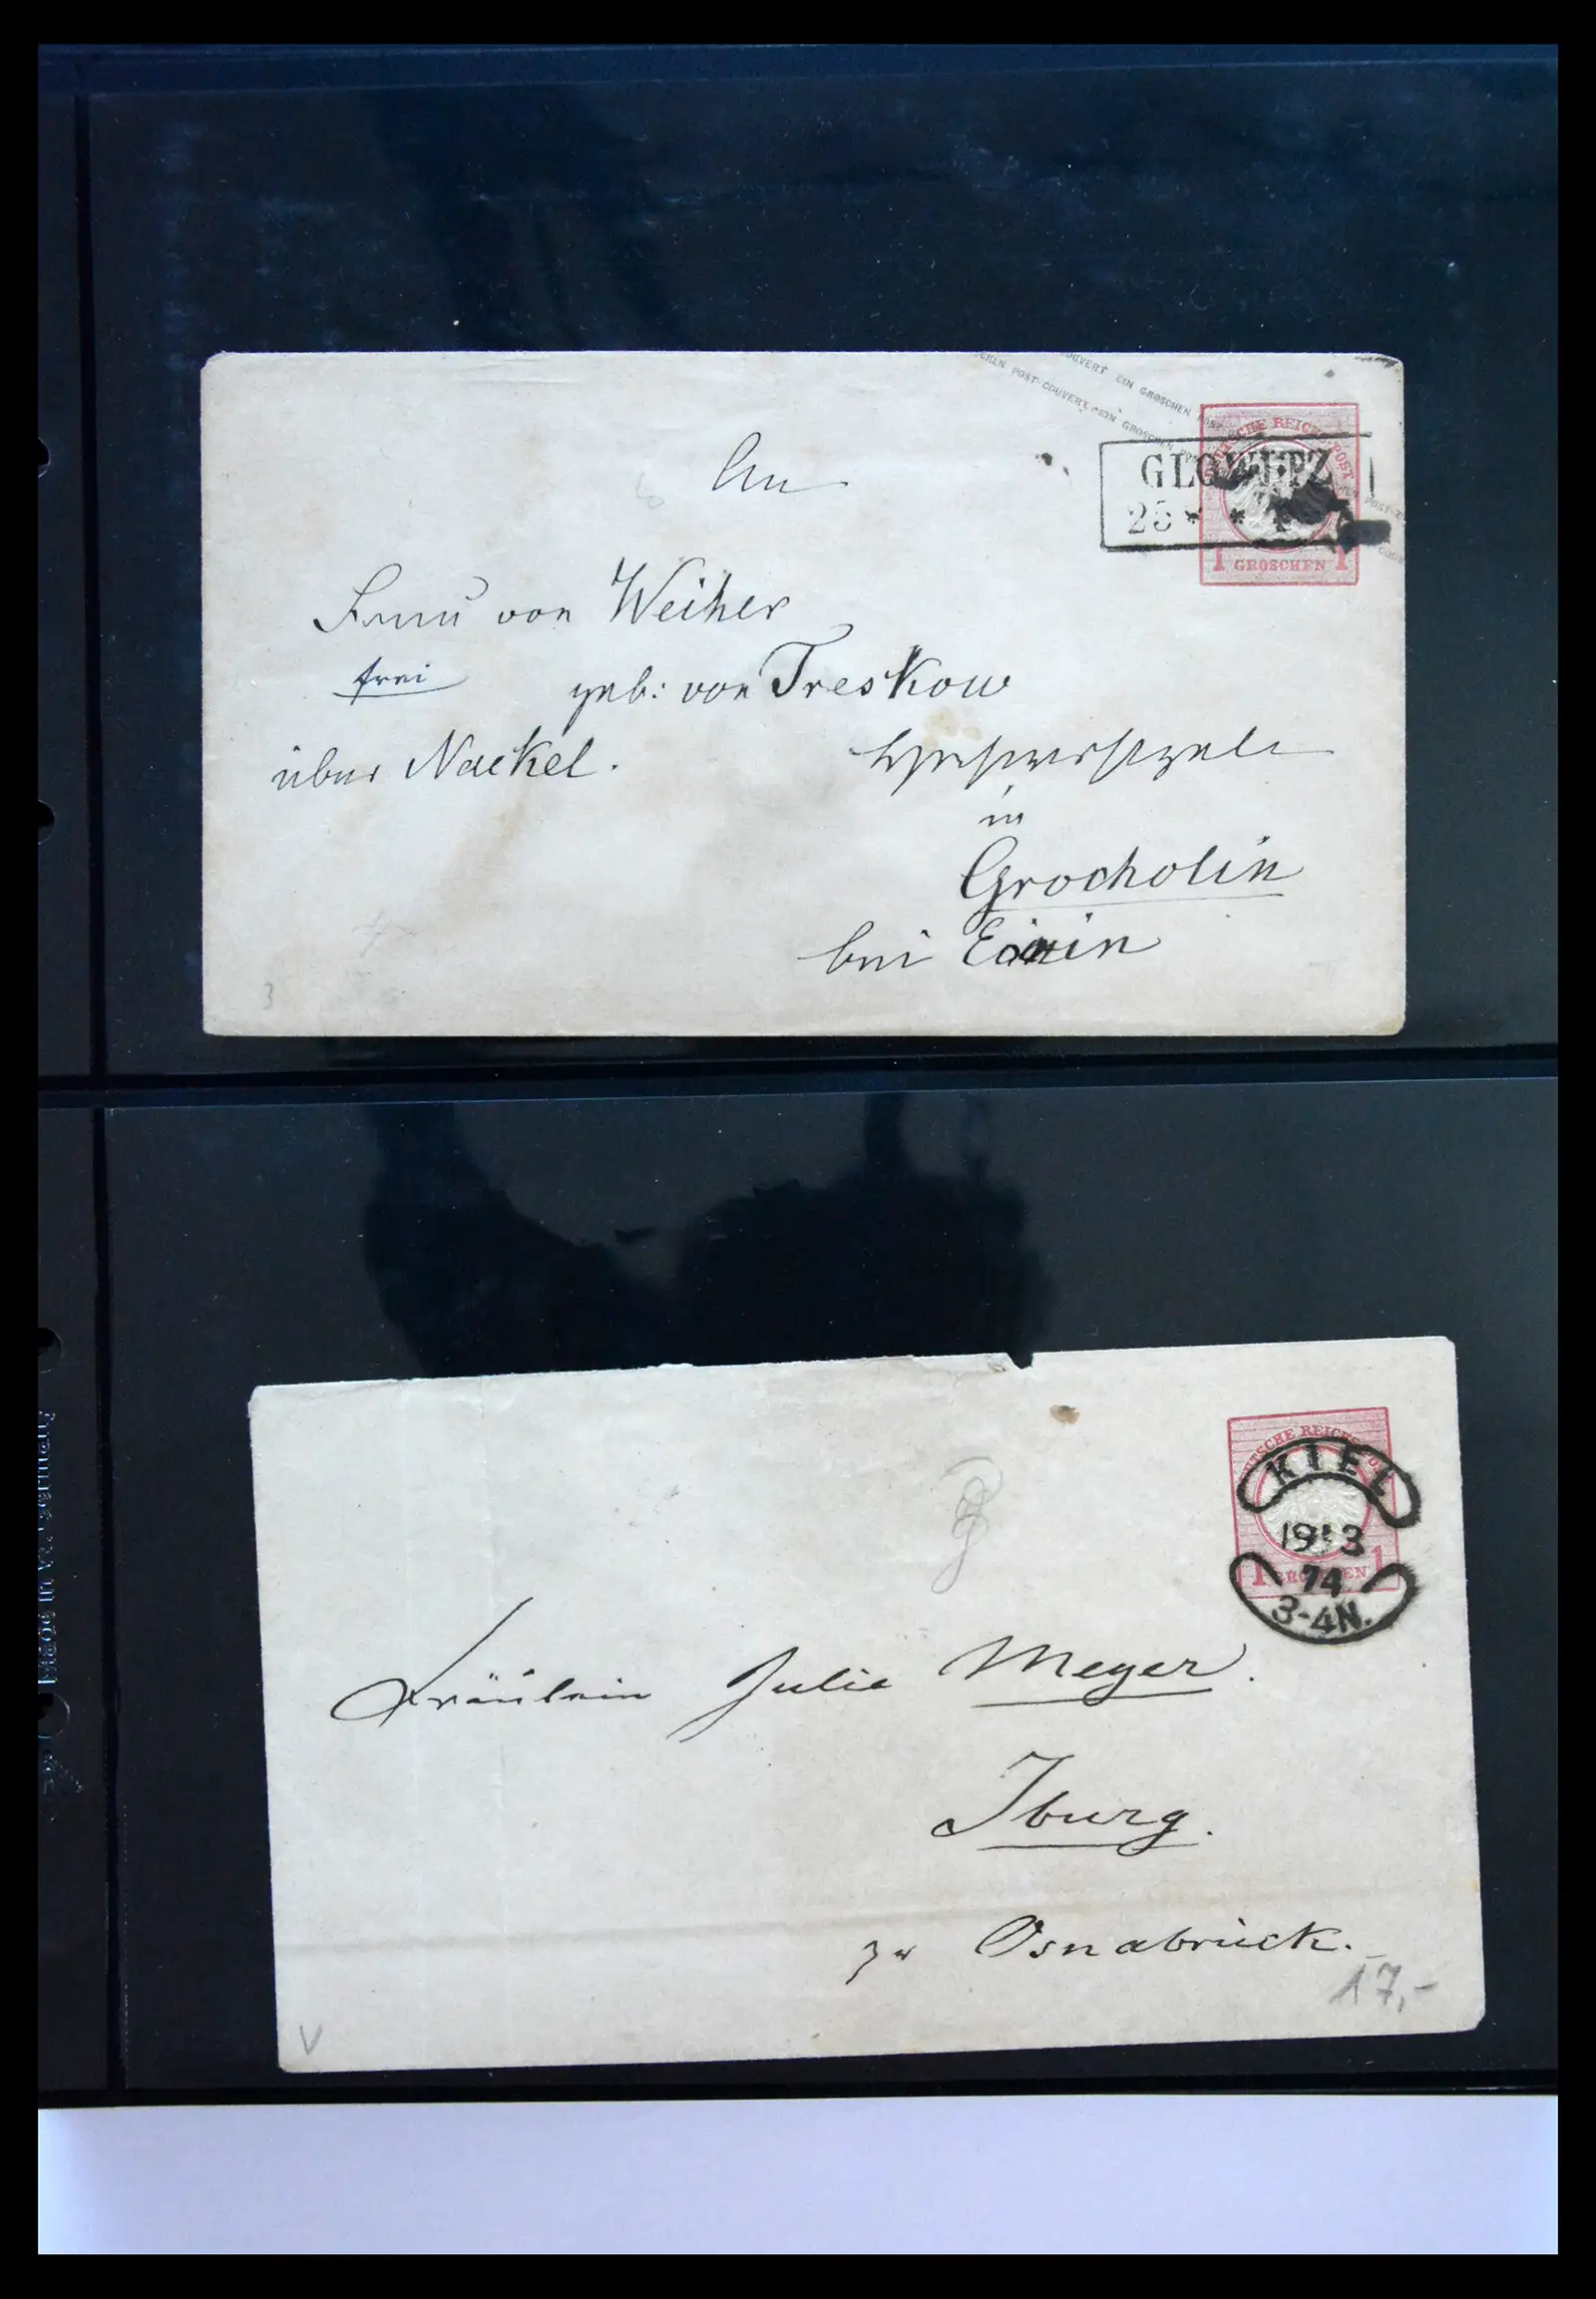 POST-COUVERT EIN GROSCHEN
COUVERT EIN GROSCHEN POST-
DEUTSCHE REICHS-POST
GLOWITZ
25 * *
1 GROSCHEN 1
An
Frau von Weiher
frei
geb: von Treskow
über Nackel.
Hochwohlgeb.
in
Grocholin
bei Exin
3
DEUTSCHE REICHS-POST
KIEL
19 3
74
3-4N.
1 GROSCHEN 1
Fräulein Julie Meyer.
Iburg.
zu Osnabrück.
17,-
V
Made in W. Germany